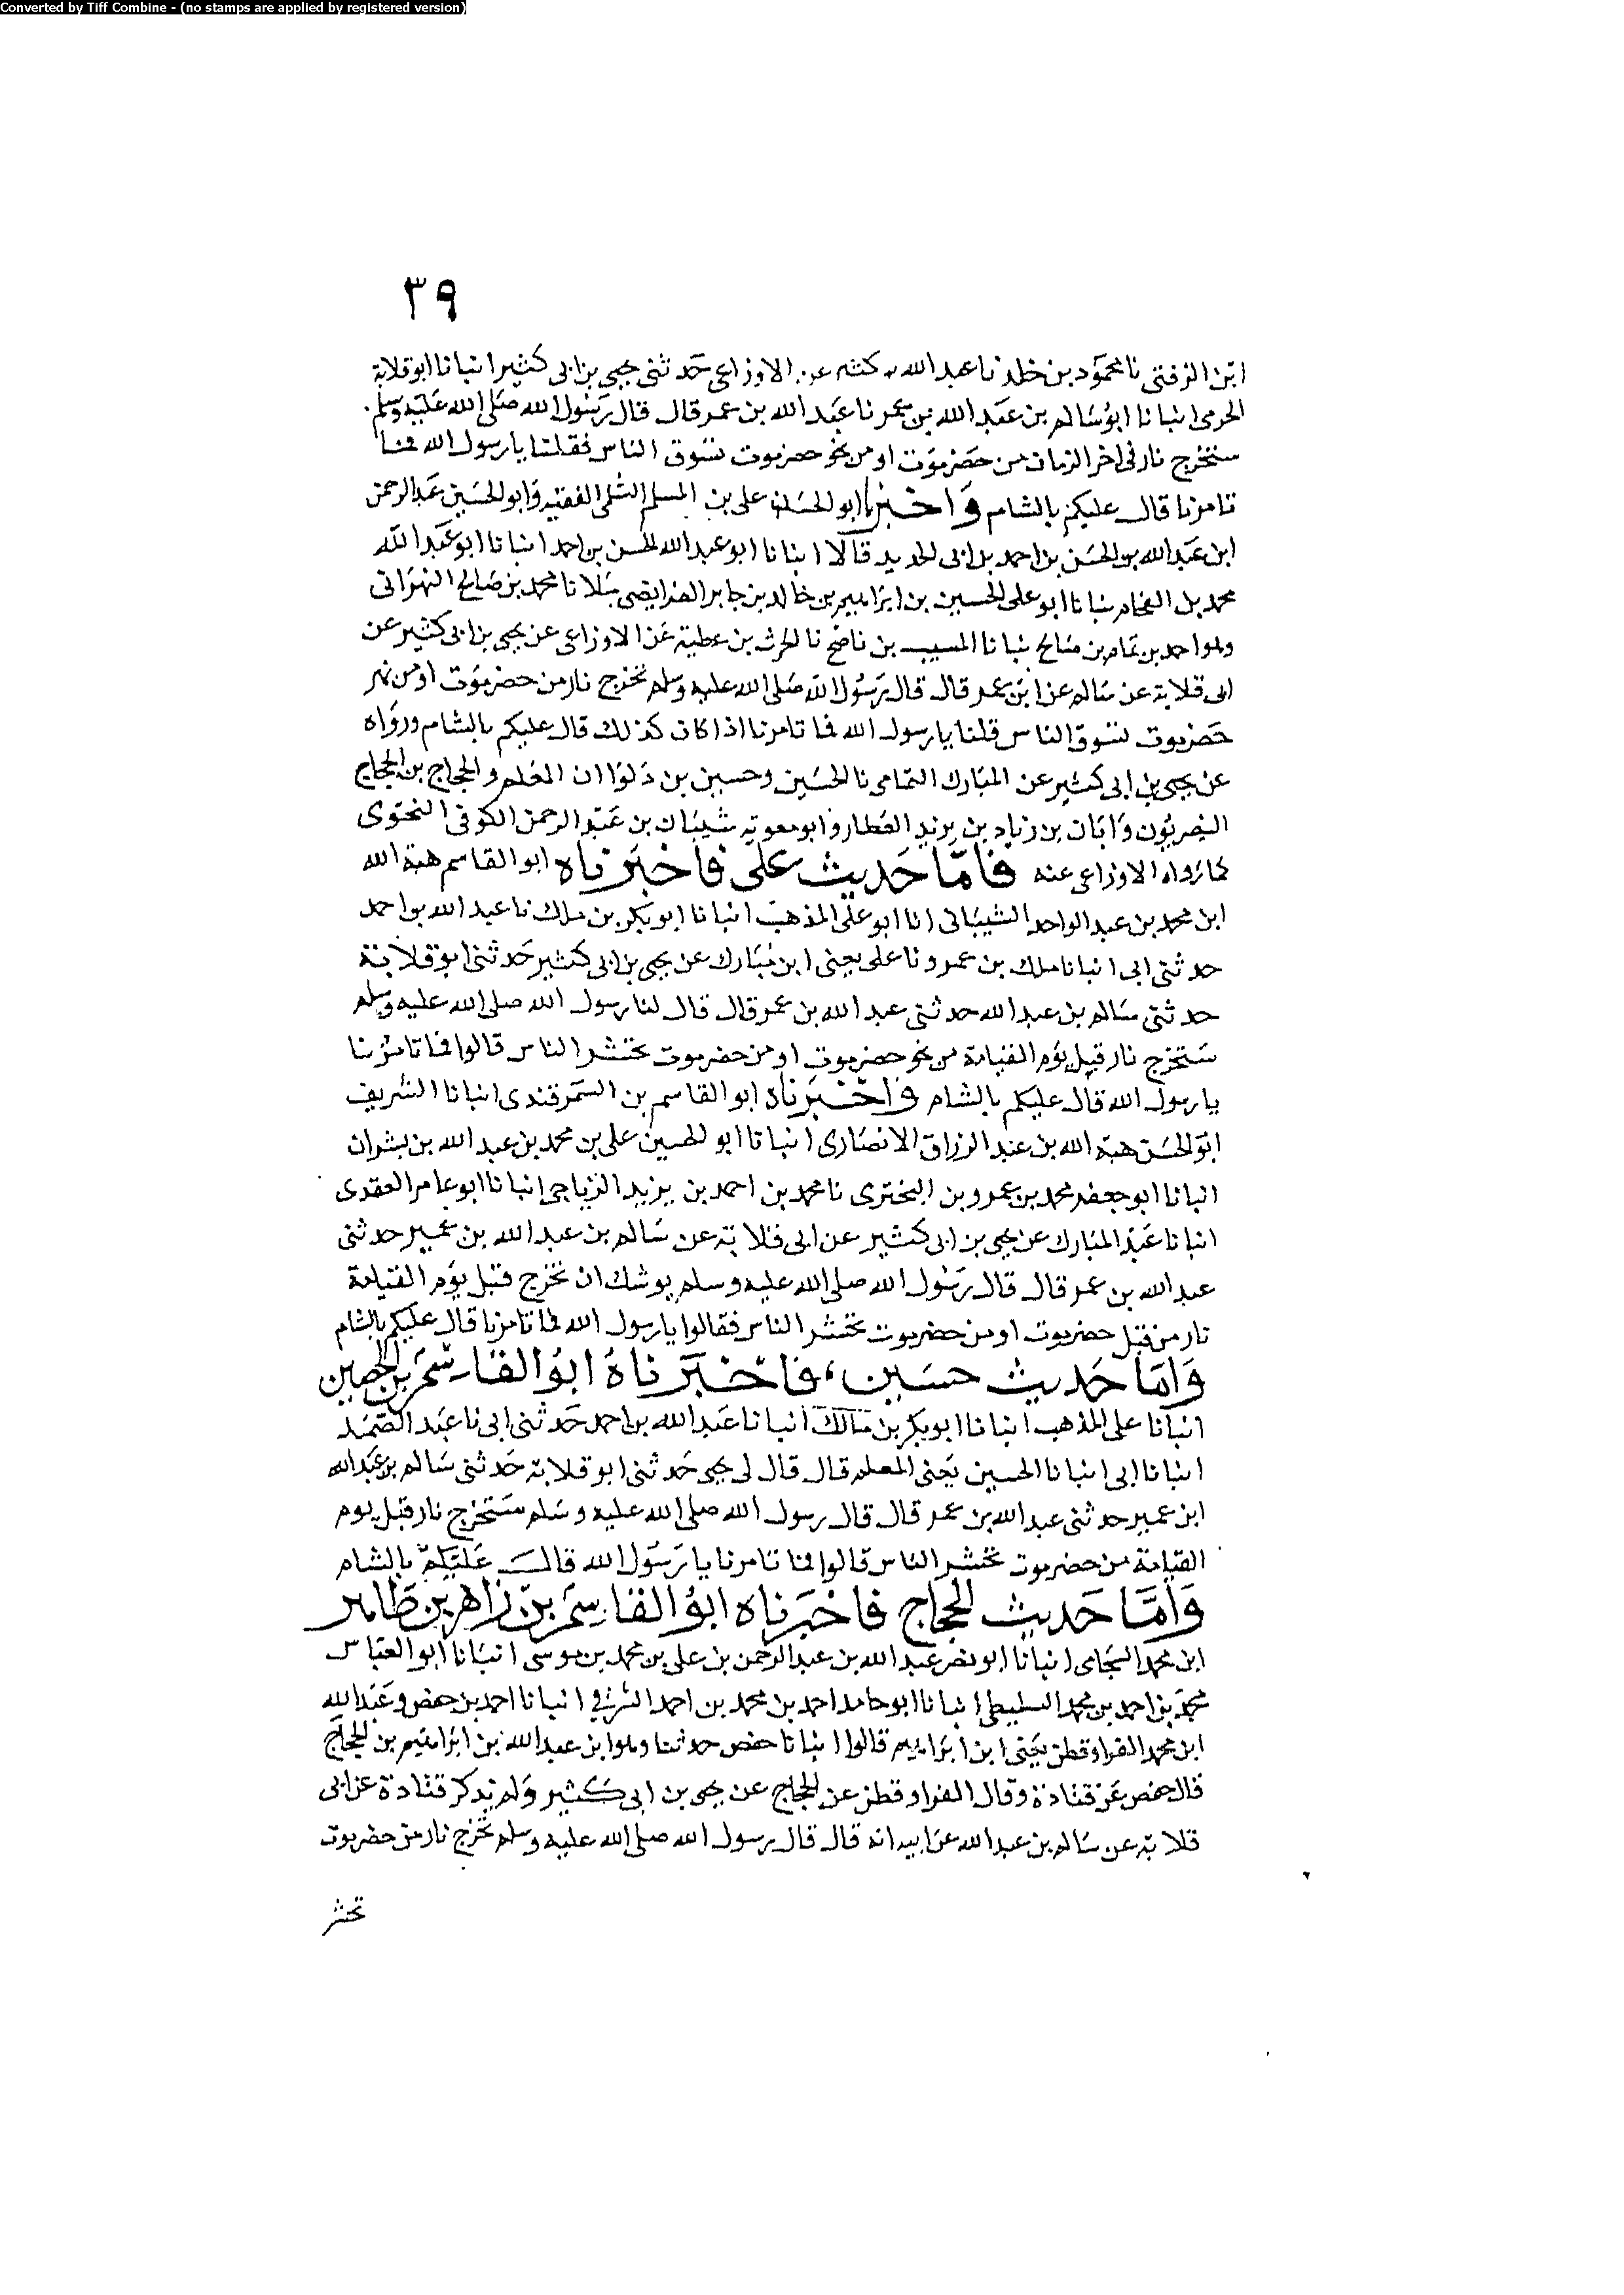 Converted by Tiff Combine - (no stamps are applied by registered version)
٣٩
ابن الزفتى نا محمود بن خلد نا عبد الله بن كثير عن الاوزاعى حدثنى يحيى بن ابى كثير انبانا ابو قلابة
الحرمى انبانا ابو سالم بن عبد الله بن عمر نا عبد الله بن عمر قال قال رسول الله صلى الله عليه وسلم
ستخرج نار فى اخر الزمان من حضرموت او من نحو حضرموت تسوق الناس فقلنا يا رسول الله فما
تامرنا قال عليكم بالشام واخبرنا ابو الحسن على بن المسلم السلمى الفقيه وابو الحسين عبد الرحمن
ابن عبد الله بن الحسن بن احمد بن ابى الحديد قالا انبانا ابو عبد الله الحسن بن احمد انبانا ابو عبد الله
محمد بن الفحام نبانا ابو على الحسين بن ابراهيم بن خالد بن جابر الفرايضى نا محمد بن صالح النهوانى
وهو احمد بن تمام بن صالح نبانا المسيب بن ناضح نا الحرث بن عطية عن الاوزاعى عن يحيى بن ابى كثير عن
ابى قلابة عن سالم عن ابن عمر قال قال رسول الله صلى الله عليه وسلم تخرج نار من حضرموت او من نحو
حضرموت تسوق الناس قلنا يا رسول الله فما تامرنا اذا كان كذلك قال عليكم بالشام ورواه
عن يحيى بن ابى كثير عن المبارك التمامى نا الحسين وحسين بن ذكوا ان المعلم والحجاج بن الحجاج
البصريون وابان بن زياد بن يزيد العطار وابو معوية شيبان بن عبد الرحمن الكوفى النحوى
كما رواه الاوزاعى عنه فاما حديث على فاخبرناه ابو القاسم هبة الله
ابن محمد بن عبد الواحد الشيبانى انا ابو على المذهب انبانا ابو بكر بن ملك نا عبد الله بن احمد
حدثنى ابى انبانا ملك بن عمرو نا على يعنى ابن مبارك عن يحيى بن ابى كثير حدثنى ابو قلابة
حدثنى سالم بن عبد الله حدثنى عبد الله بن عمر قال قال لنا رسول الله صلى الله عليه وسلم
ستخرج نار قبل يوم القيامة من نحو حضرموت او من حضرموت تحشر الناس قالوا فما تامرنا
يا رسول الله قال عليكم بالشام واخبرناه ابو القاسم بن السمرقندى انبانا الشريف
ابو الحسن هبة الله بن عبد الرزاق الانصارى انبانا ابو الحسين على بن محمد بن عبد الله بن بشران
انبانا ابو جعفر محمد بن عمرو بن البخترى نا محمد بن احمد بن يزيد الرياحى انبانا ابو عامر العقدى
انبانا عبد المبارك عن يحيى بن ابى كثير عن ابى قلابة عن سالم بن عبد الله بن عمير حدثنى
عبد الله بن عمر قال قال رسول الله صلى الله عليه وسلم يوشك ان تخرج قبل يوم القيامة
نار من قبل حضرموت او من حضرموت تحشر الناس فقالوا يا رسول الله فما تامرنا قال عليكم بالشام
واما حديث حسين، فاخبرناه ابو القاسم بن الحصين
انبانا على المذهب انبانا ابو بكر بن مالك انبانا عبد الله بن احمد حدثنى ابى نا عبد الصمد
انبانا ابى انبانا الحسين يعنى المعلم قال قال لى يحيى حدثنى ابو قلابة حدثنى سالم بن عبد الله
ابن عمير حدثنى عبد الله بن عمر قال قال رسول الله صلى الله عليه وسلم ستخرج نار قبل يوم
القيامة من حضرموت تحشر الناس قالوا فما تامرنا يا رسول الله قال عليكم بالشام
واما حديث الحجاج فاخبرناه ابو القاسم بن زاهر بن طاهر
ابن محمد الشحامى انبانا ابو نصر عبد الله بن عبد الرحمن بن على بن محمد بن موسى انبانا ابو العباس
محمد بن احمد بن محمد السليطى انبانا ابو حامد احمد بن محمد بن احمد الشرفى انبانا احمد بن حفص وعبد الله
ابن محمد الفراو قطن يعنى ابن ابراهيم قالوا انبانا حفص حدثنا وهوا بن عبد الله بن ابراهيم بن الحجاج
قال حفص عن قتادة وقال الفراو قطن عن الحجاج عن يحيى بن ابى كثير ولم يذكر قتادة عن ابى
قلابة عن سالم بن عبد الله عن ابيه انه قال قال رسول الله صلى الله عليه وسلم تخرج نار من حضرموت
تحشر